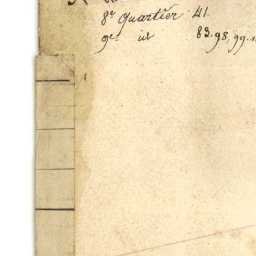 8e Quartier 41.
9e id 83. 98. 99.